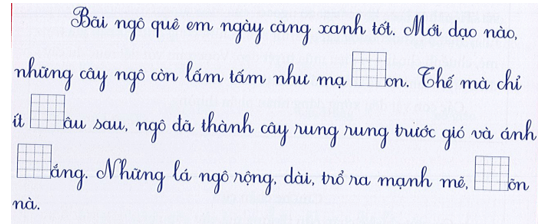 Bãi ngô quê em ngày càng xanh tốt. Mới dạo nào,
những cây ngô còn lấm tấm như mạ on. Thế mà chỉ
ít âu sau, ngô đã thành cây rung rung trước gió và ánh
ắng. Những lá ngô rộng, dài, trổ ra mạnh mẽ, õn
nà.